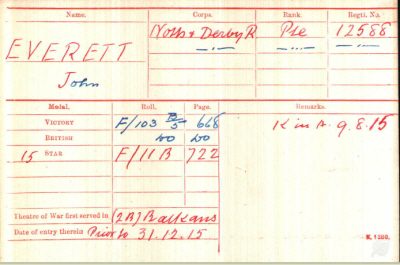 Name. Corps. Rank. Regtl. No.
EVERETT Notts & Derby R Pte 12588
John —"— —"— —"—
Medal. Roll. Page. Remarks.
VICTORY F/103 B/5 668 K in A. 9.8.15
BRITISH do do
15 STAR F/11 B 722
Theatre of War first served in (2B) Balkans
Date of entry therein Prior to 31.12.15
K. 1380.